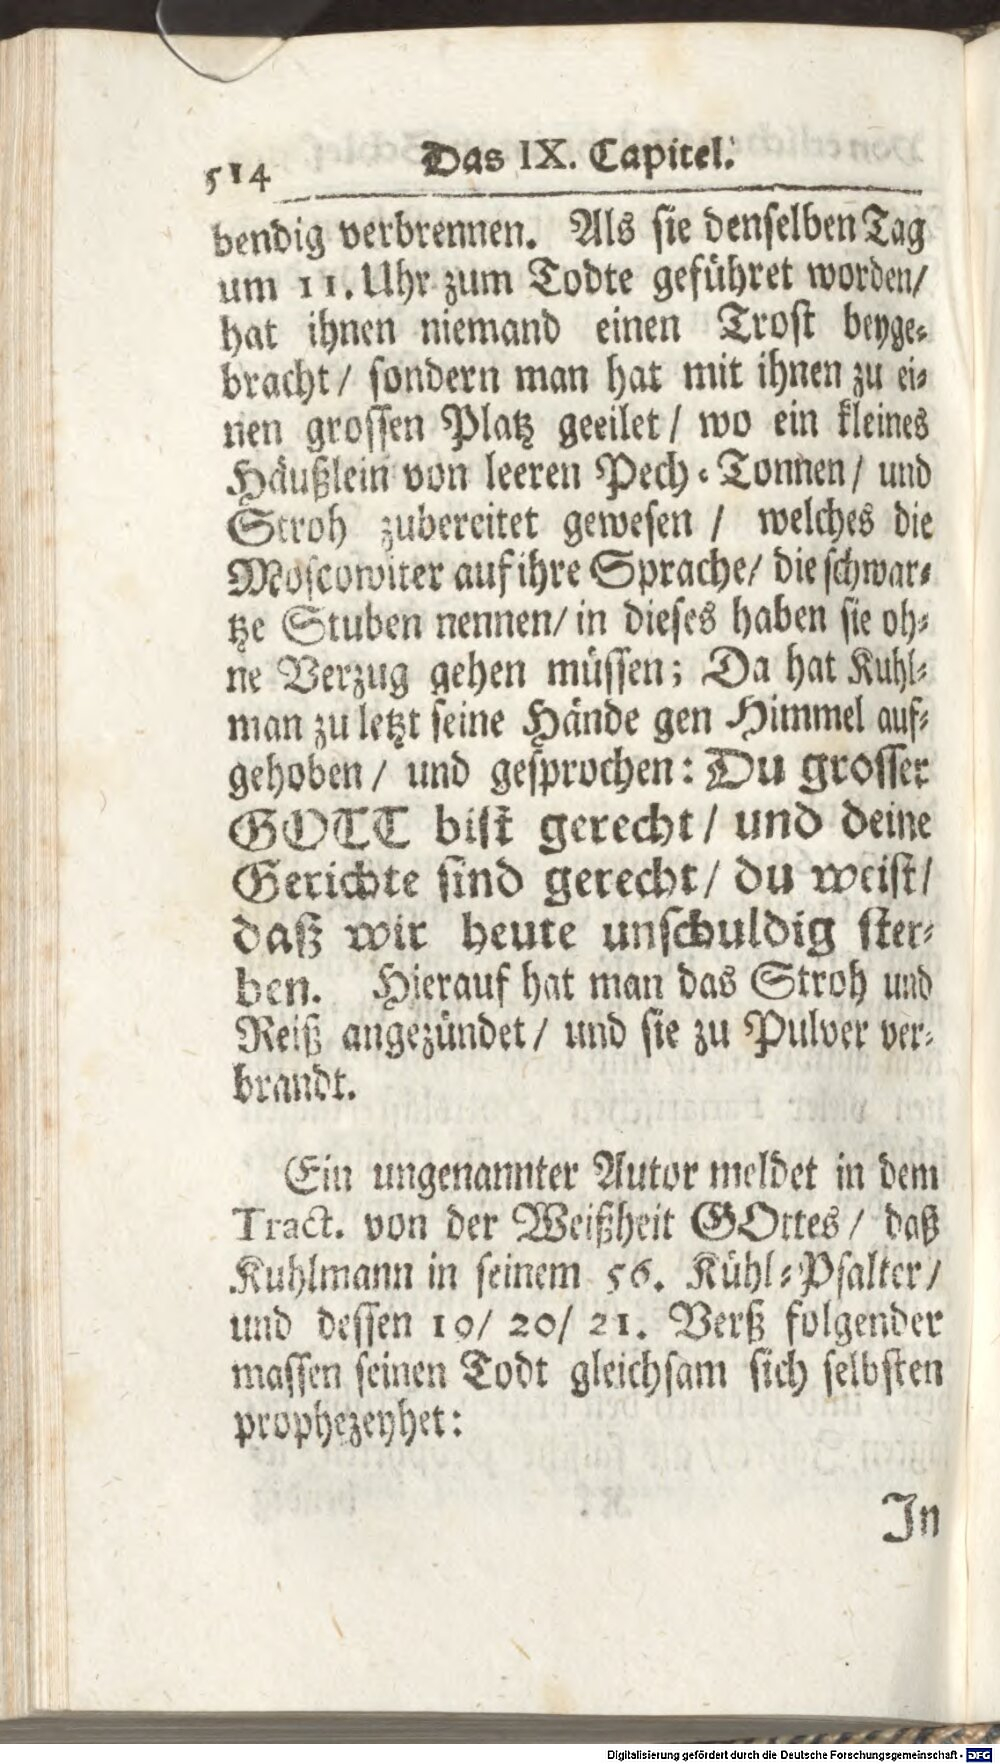 514 Das IX. Capitel.
bendig verbrennen. Als sie denselben Tag
um 11. Uhr zum Todte geführet worden/
hat ihnen niemand einen Trost beyge-
bracht/ sondern man hat mit ihnen zu ei-
nen grossen Platz geeilet/ wo ein kleines
Häußlein von leeren Pech-Tonnen/ und
Stroh zubereitet gewesen / welches die
Moscowiter auf ihre Sprache/ die schwar-
tze Stuben nennen/ in dieses haben sie oh-
ne Verzug gehen müssen; Da hat Kuhl-
man zu letzt seine Hände gen Himmel auf-
gehoben/ und gesprochen: Du grosser
GOTT bist gerecht/ und deine
Gerichte sind gerecht/ du weist/
daß wir heute unschuldig ster-
ben. Hierauf hat man das Stroh und
Reiß angezündet/ und sie zu Pulver ver-
brandt.
Ein ungenannter Autor meldet in dem
Tract. von der Weißheit GOttes/ daß
Kuhlmann in seinem 56. Kühl-Psalter/
und dessen 19/ 20/ 21. Verß folgender
massen seinen Todt gleichsam sich selbsten
prophezeyhet:
In
Digitalisierung gefördert durch die Deutsche Forschungsgemeinschaft - DFG